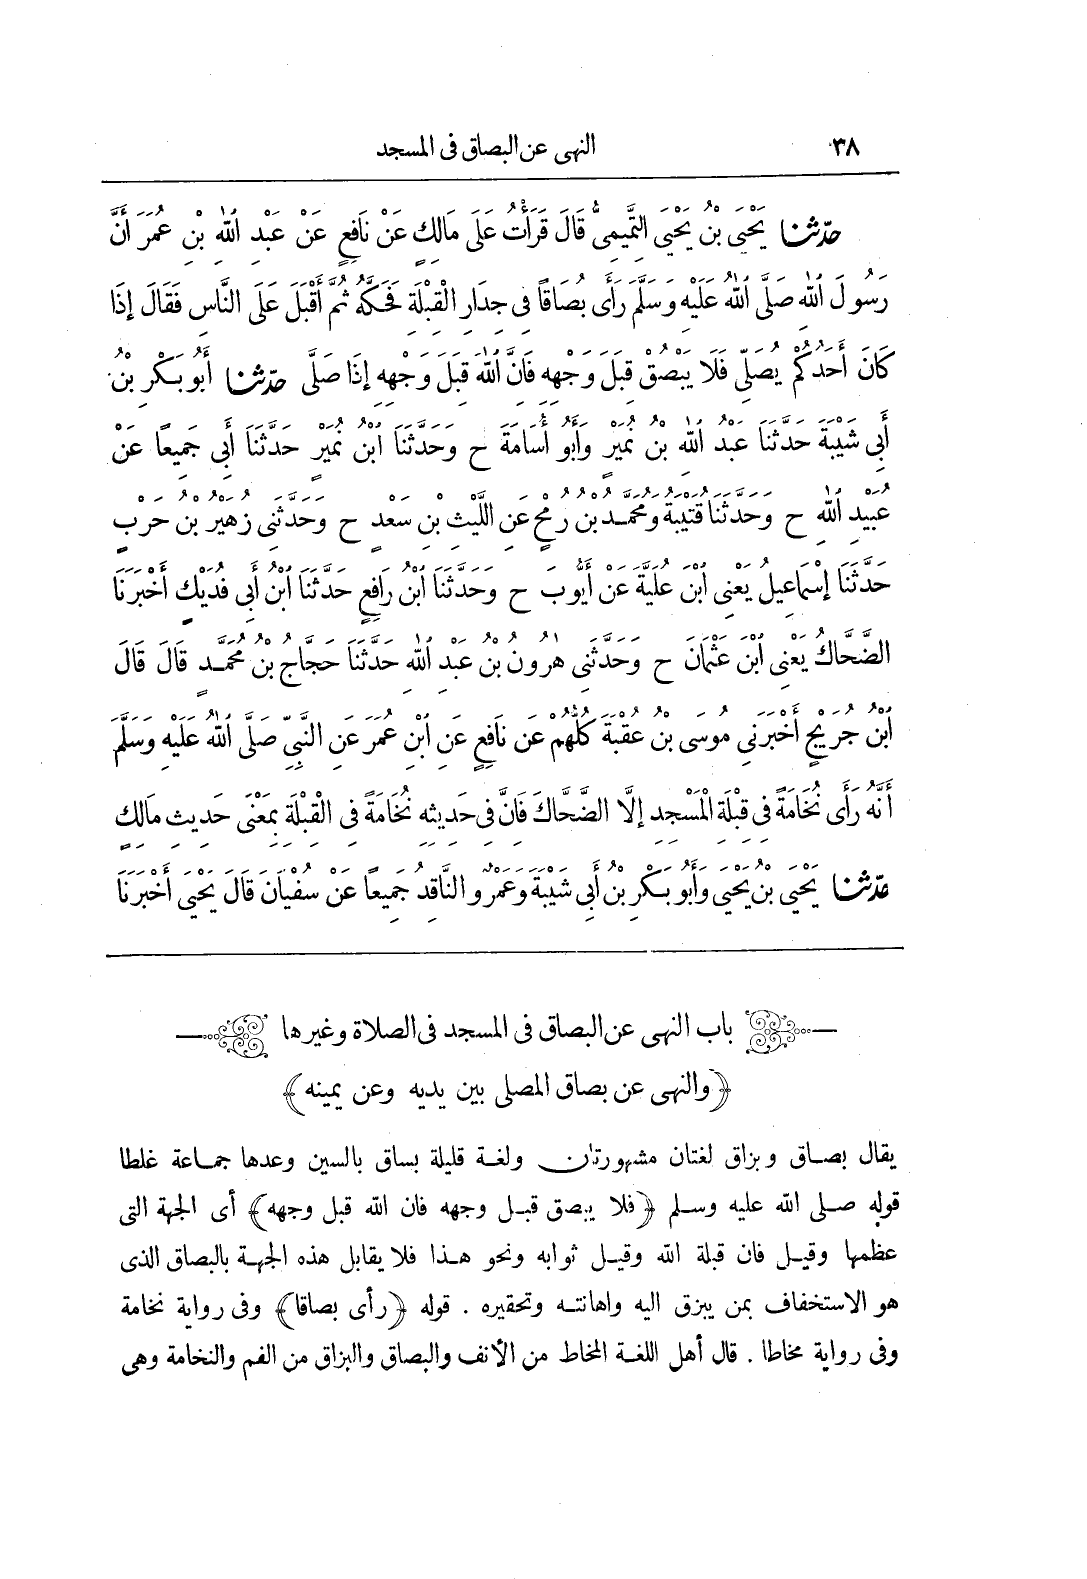 ٣٨ النهى عن البصاق فى المسجد
حدثنا يَحْيَى بْنُ يَحْيَى التَّمِيمِىُّ قَالَ قَرَأْتُ عَلَى مَالِكٍ عَنْ نَافِعٍ عَنْ عَبْدِ اللّٰهِ بْنِ عُمَرَ أَنَّ
رَسُولَ اللّٰهِ صَلَّى اللّٰهُ عَلَيْهِ وَسَلَّمَ رَأَى بُصَاقًا فِى جِدَارِ الْقِبْلَةِ فَحَكَّهُ ثُمَّ أَقْبَلَ عَلَى النَّاسِ فَقَالَ إِذَا
كَانَ أَحَدُكُمْ يُصَلِّى فَلَا يَبْصُقْ قِبَلَ وَجْهِهِ فَانَّ اللّٰهَ قِبَلَ وَجْهِهِ إِذَا صَلَّى حدثنا أَبُو بَكْرِ بْنُ
أَبِى شَيْبَةَ حَدَّثَنَا عَبْدُ اللّٰهِ بْنُ نُمَيْرٍ وَأَبُو أُسَامَةَ ح وَحَدَّثَنَا ابْنُ نُمَيْرٍ حَدَّثَنَا أَبِى جَمِيعًا عَنْ
عُبَيْدِ اللّٰهِ ح وَحَدَّثَنَا قُتَيْبَةُ وَمُحَمَّدُ بْنُ رُمْحٍ عَنِ اللَّيْثِ بْنِ سَعْدٍ ح وَحَدَّثَنِى زُهَيْرُ بْنُ حَرْبٍ
حَدَّثَنَا إِسْمَاعِيلُ يَعْنِى ابْنَ عُلَيَّةَ عَنْ أَيُّوبَ ح وَحَدَّثَنَا ابْنُ رَافِعٍ حَدَّثَنَا ابْنُ أَبِى فُدَيْكٍ أَخْبَرَنَا
الضَّحَّاكُ يَعْنِى ابْنَ عُثْمَانَ ح وَحَدَّثَنِى هٰرُونُ بْنُ عَبْدِ اللّٰهِ حَدَّثَنَا حَجَّاجُ بْنُ مُحَمَّدٍ قَالَ قَالَ
ابْنُ جُرَيْجٍ أَخْبَرَنِى مُوسَى بْنُ عُقْبَةَ كُلُّهُمْ عَنْ نَافِعٍ عَنِ ابْنِ عُمَرَ عَنِ النَّبِىِّ صَلَّى اللّٰهُ عَلَيْهِ وَسَلَّمَ
أَنَّهُ رَأَى نُخَامَةً فِى قِبْلَةِ الْمَسْجِدِ إِلَّا الضَّحَّاكَ فَانَّ فِى حَدِيثِهِ نُخَامَةً فِى الْقِبْلَةِ بِمَعْنَى حَدِيثِ مَالِكٍ
حدثنا يَحْيَى بْنُ يَحْيَى وَأَبُو بَكْرِ بْنُ أَبِى شَيْبَةَ وَعَمْرٌو النَّاقِدُ جَمِيعًا عَنْ سُفْيَانَ قَالَ يَحْيَى أَخْبَرَنَا
باب النهى عن البصاق فى المسجد فى الصلاة وغيرها
﴿والنهى عن بصاق المصلى بين يديه وعن يمينه﴾
يقال بصاق وبزاق لغتان مشهورتان ولغة قليلة بساق بالسين وعدها جماعة غلطا
قوله صلى الله عليه وسلم ﴿فلا يبصق قبل وجهه فان الله قبل وجهه﴾ أى الجهة التى
عظمها وقيل فان قبلة الله وقيل ثوابه ونحو هذا فلا يقابل هذه الجهة بالبصاق الذى
هو الاستخفاف بمن يبزق اليه واهانته وتحقيره . قوله ﴿رأى بصاقا﴾ وفى رواية نخامة
وفى رواية مخاطا . قال أهل اللغة المخاط من الأنف والبصاق والبزاق من الفم والنخامة وهى